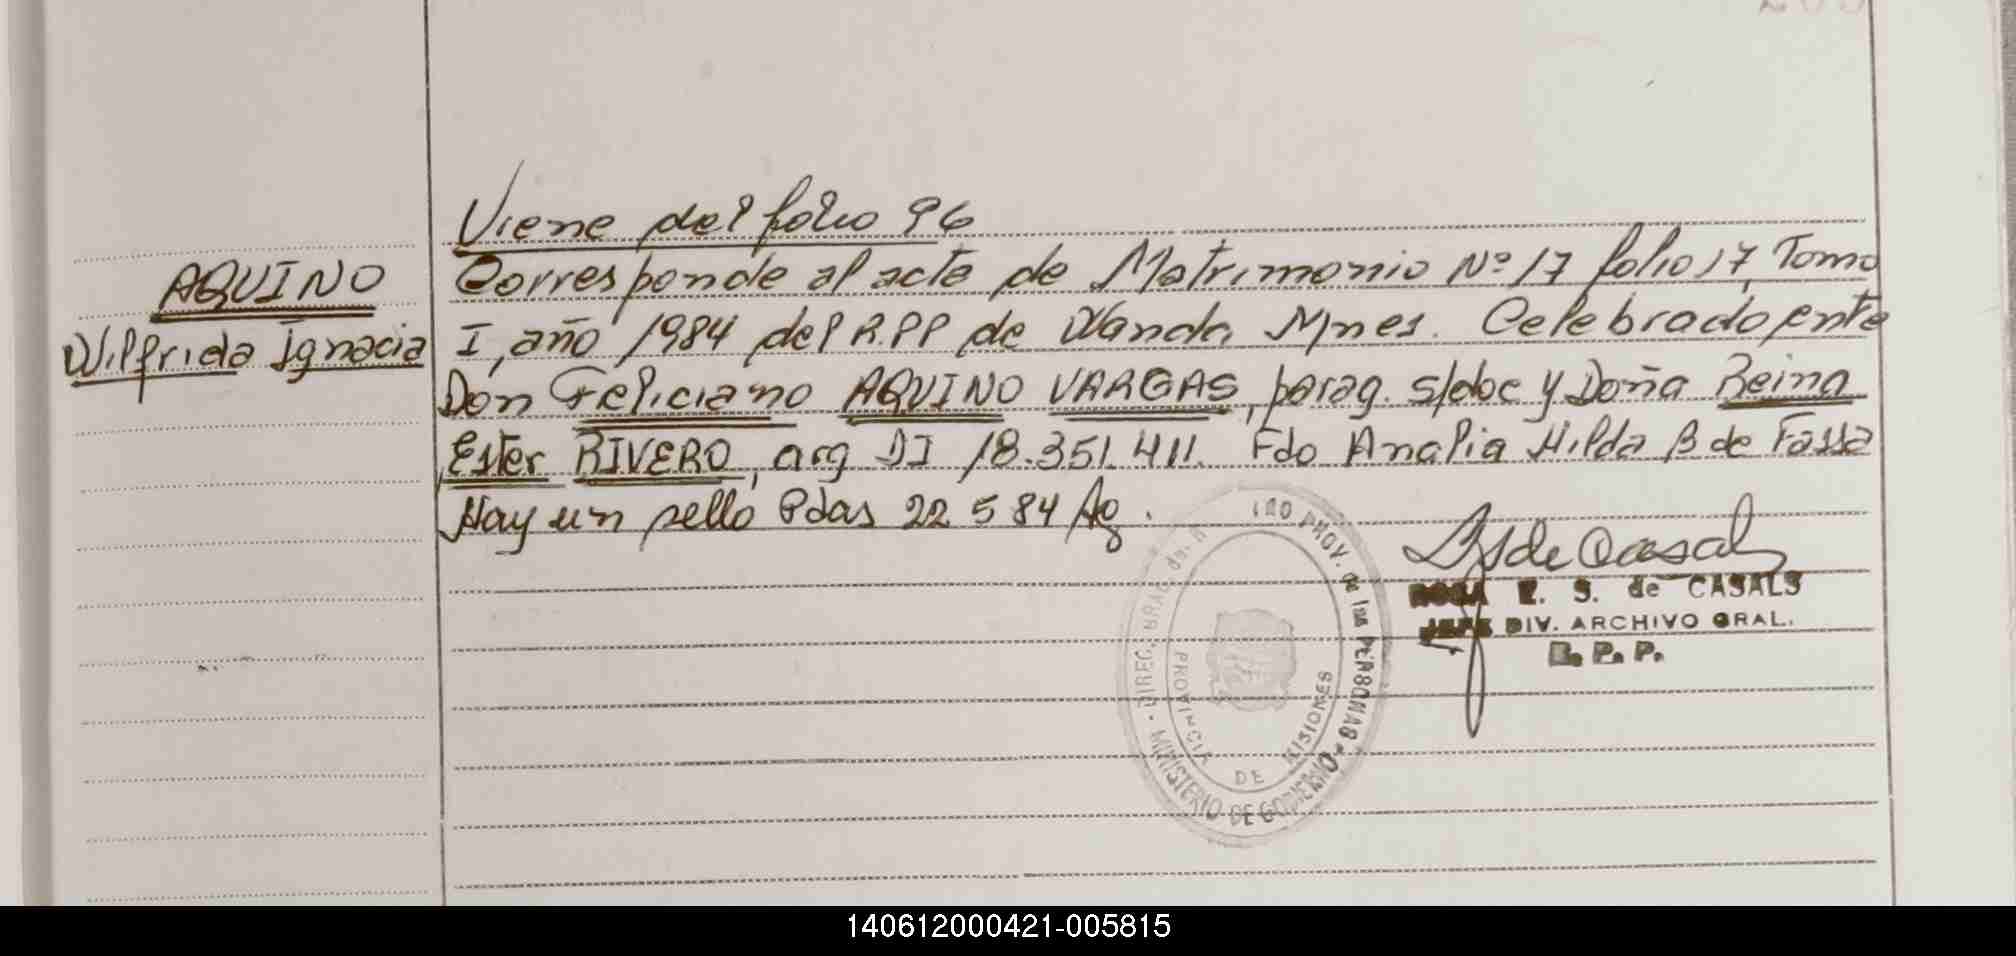 Viene del folio 96
AQUINO
Wilfrida Ignacia
Corresponde al acta de Matrimonio Nº 17 folio 17, Tomo
I, año 1984 del R.PP de Wanda, Mnes. Celebrado ente
Don Feliciano AQUINO VARGAS, parag. s/doc y Doña Reina
Ester RIVERO, arg DI 18.351.411. Fdo Analia Hilda B de Fassa
Hay un sello Pdas 22 5 84 Ag.
ROSA E. S. de CASALS
JEFE DIV. ARCHIVO GRAL.
R. P. P.
PROV. de las PERSONAS - MINISTERIO DE GOBIERNO
PROVINCIA DE MISIONES
140612000421-005815